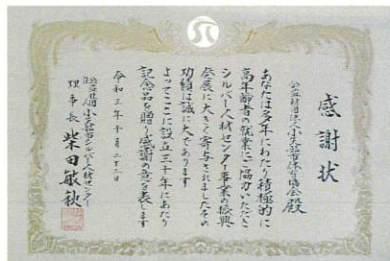 感謝状
公益財団法人小矢部市体育協会殿
あなたは多年にわたり積極的に
高年齢者の就業にご協力いただき
シルバー人材センター事業の振興
発展に大きく寄与されましたその
功績は誠に大であります
よってここに設立三十年にあたり
記念品を贈り感謝の意を表します
令和三年十月二十二日
公益社団法人小矢部市シルバー人材センター
理事長 柴田敏秋